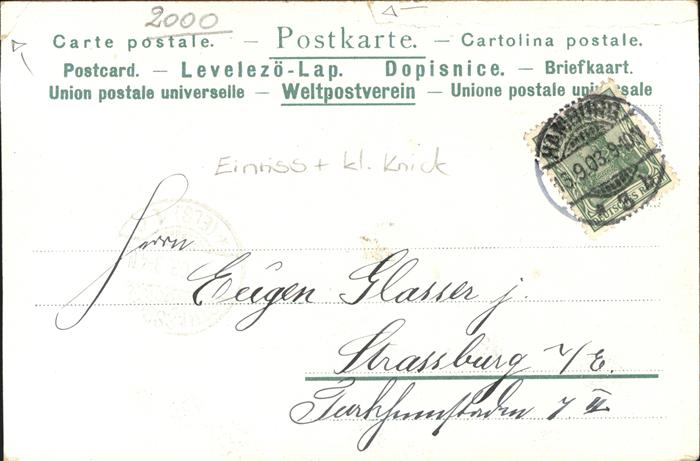 2000
Carte postale. — Postkarte. — Cartolina postale.
Postcard. — Levelezö-Lap. Dopisnice. — Briefkaart.
Union postale universelle — Weltpostverein — Unione postale universale
HAMBURG
9.03.9-10
DEUTSCHES R
Einriss + kl. Knick
(ELS)
Herrn
Eugen Glasser j.
Strassburg i/E.
7 II